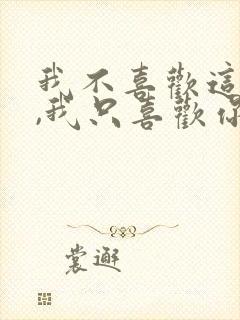 我不喜歡這
,我只喜歡你
裳邂